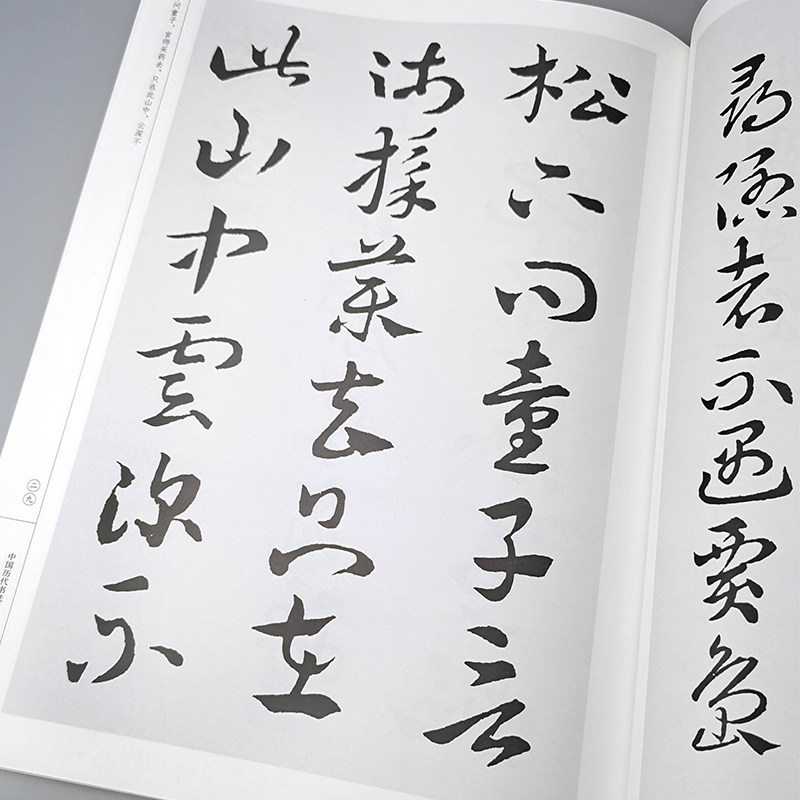 尋隱者不遇賈島
松下問童子言
師採藥去只在
此山中雲深不
问童子，言师采药去，只在此山中，云深不
二九
中国历代书法